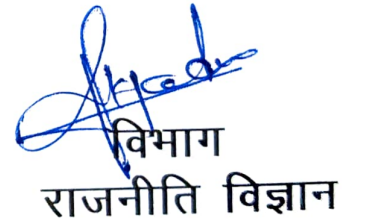 विभाग
राजनीति विज्ञान